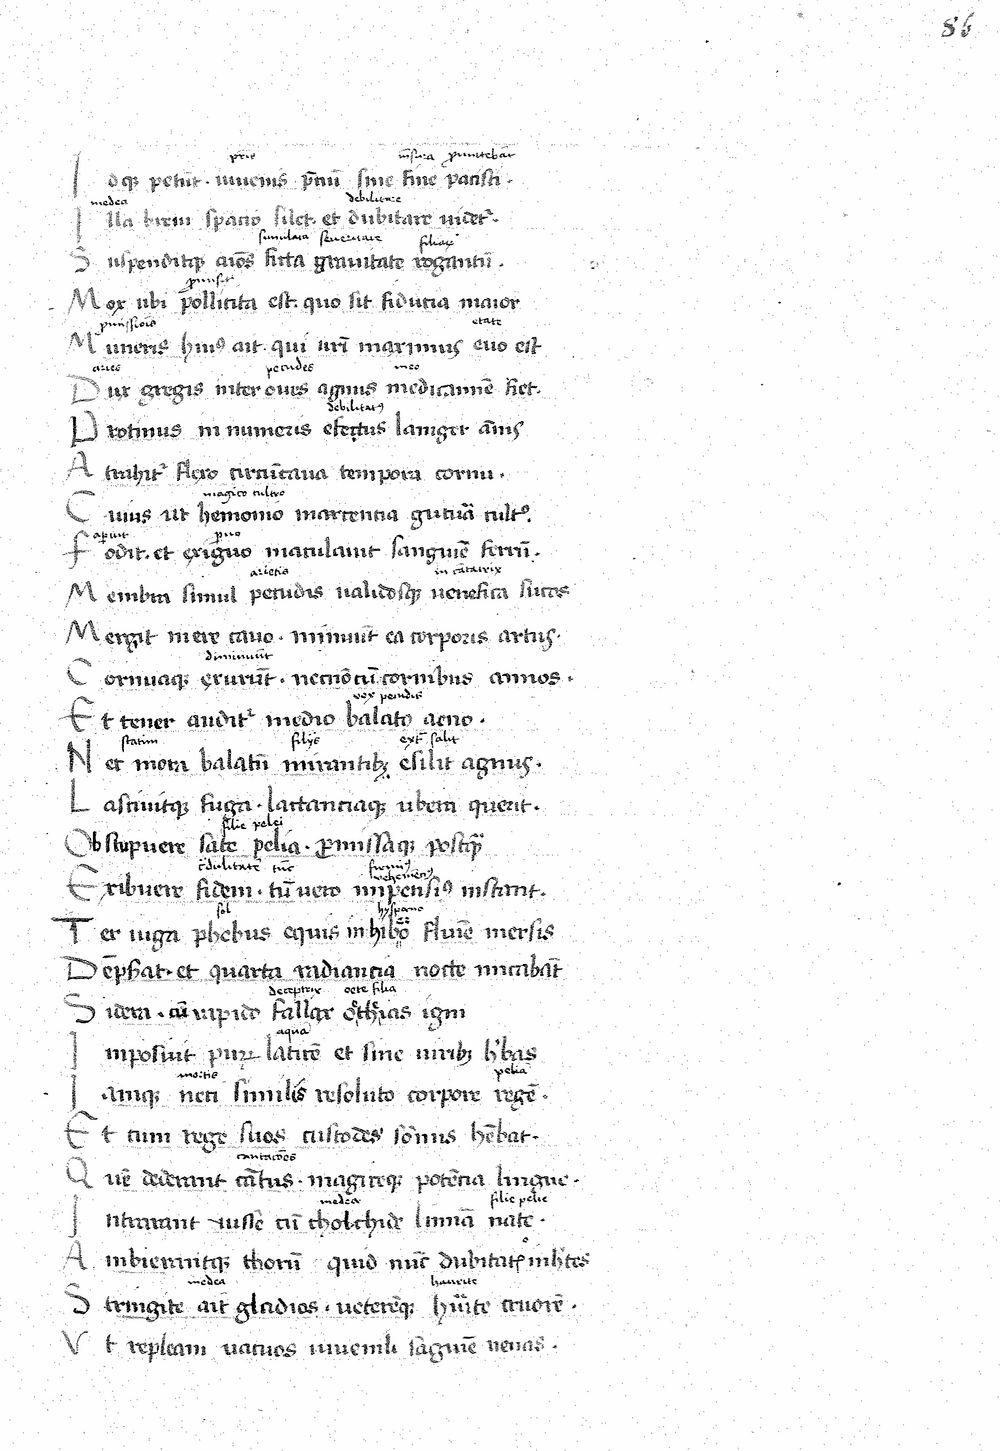 86
pris mensura promittebant
Idqꝫ petunt · iuuenis p̄ciū sine fine pacisci ·
medea debilitare
Illa breui spacio silet · et dubitare uidetᵉ ·
simulata seueritate filiaꝝ
Suspenditqꝫ aīos ficta grauitate rogantū ·
promisit
Mox ubi pollicita est · quo sit fiducia maior
promissiōis etate
Muneris huiꝰ ait · qui urī maximus euo est
aries pecudes meo
Dux gregis inter oues agnus medicamīe fiet ·
debilitatꝰ
Protinus innumeris efectus laniger annis
Atrahitᵉ flexo circūcaua tempora cornu ·
magico cultro
Cuius ut hemonio marcentia gutura cultᵒ ·
aperuit paruo
Fodit · et exiguo maculauit sanguīe ferrū ·
arietis incantatrix
Membra simul pecudis ualidosqꝫ uenefica sucos
Mergit in ere cauo · minuūt ea corporis artus ·
diminuūt
Cornuaqꝫ exurūt · necnō cū cornibus annos ·
vox pecudis
Et tener auditᵉ medio balato aeno ·
statim filijs extra salit
Nec mora balatū mirantibꝫ exilit agnus ·
Lasciuitqꝫ fuga · lactanciaqꝫ ubera querit ·
filie pelei
Obstupuere sate pelia · promissaqꝫ postqᷓ
credulitatē tūc vehementiꝰ
Exibuere fidem · tū uero impensiꝰ instant ·
sol hyspano
Ter iuga phebus equis in hibero fluīe mersis
Dēpserat · et quarta radiancia nocte micabāt
deceptrix oete filia
Sidera · cū rapido fallax oethias igni
aqua
Imposuit puꝝ laticē et sine uiribꝫ herbas
mortis pelia
Iamqꝫ neci similis resoluto corpore regē ·
Et cum rege suos custodes sōnus hēbat ·
cantacōes
Quē dederant cātus · magiceqꝫ potēcia lingue ·
medea filie pelie
Intrarant iusse cū cholchide limīa nate ·
Ambierantqꝫ thorū quid nūc dubitatꝭ inertes
medea haurite
Stringite ait gladios · ueterēqꝫ haurite cruorē ·
Vt repleam uacuos iuuenili sāguīe uenas ·